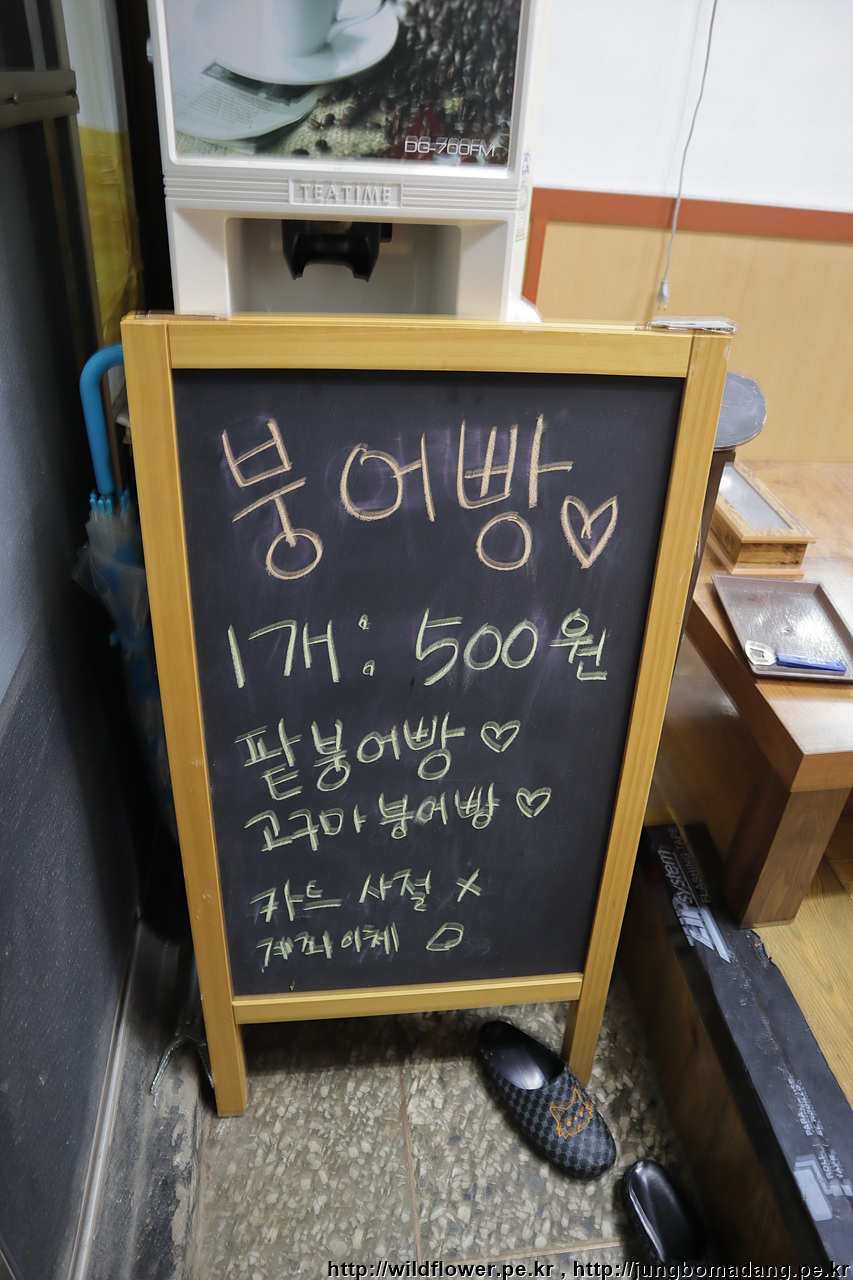 DG-700FM
TEATIME
붕어빵♡
1개: 500원
팥붕어빵♡
고구마 붕어빵♡
카드 사절 X
계좌이체 O
ZIPsystem
http://wildflower.pe.kr , http://jungbomadang.pe.kr